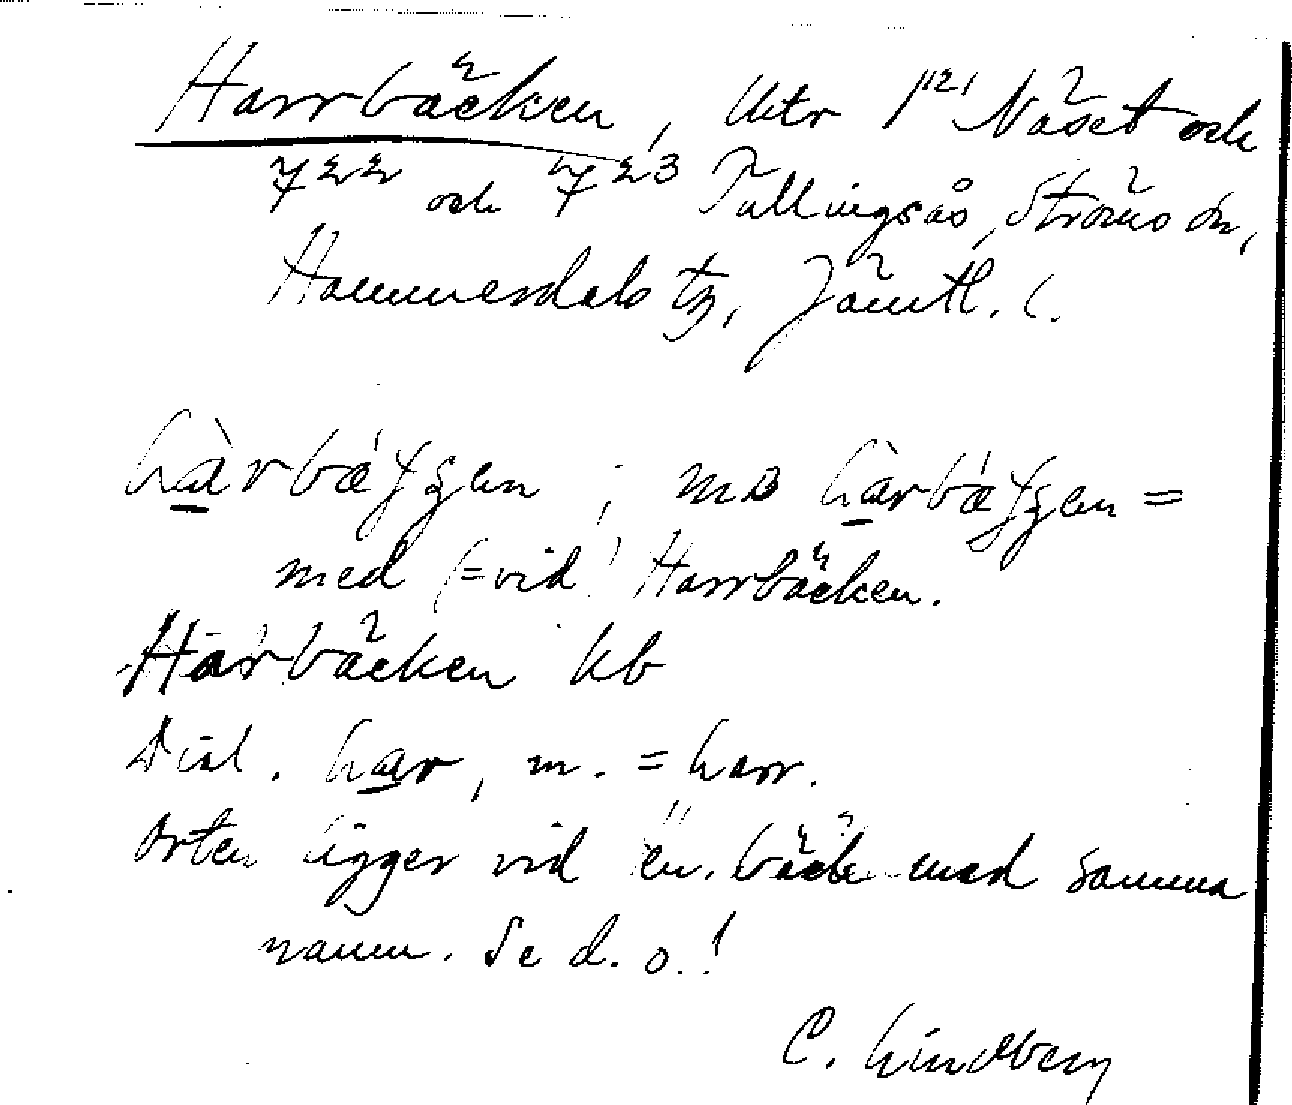 Harrbäcken, Utr 1¹²¹ Näset och
7²²² och 7²²³ Tullingsås, Ströms sn,
Hammerdals tg, Jämtl. l.
hàrbá
; mä hàrbá =
med (=vid) Harrbäcken.
Harbäcken kb
Dial. har, m. = harr.
Orten ligger vid en bäck med samma
namn. Se d. o.!
C. Lindberg